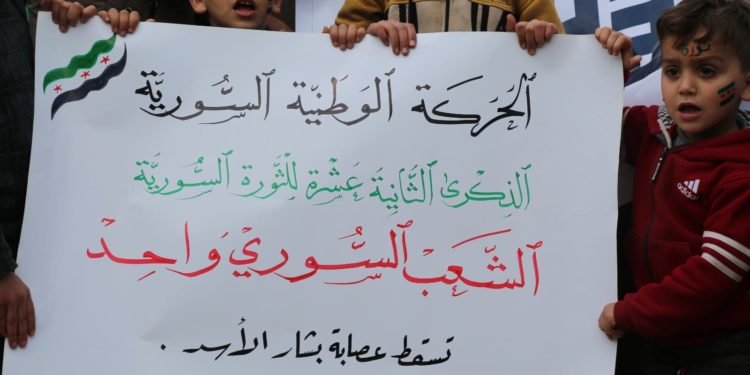 الحَرَكَة الوَطَنِيَّة السُّورِيَّة
الذِكرىٰ الثَّانِيَة عَشْرَة لِلثَّورَة السُّورِيَّة
الشَّعبْ السُّوري وَاحِدْ
تسقط عصابة بشار الأسد .
adidas